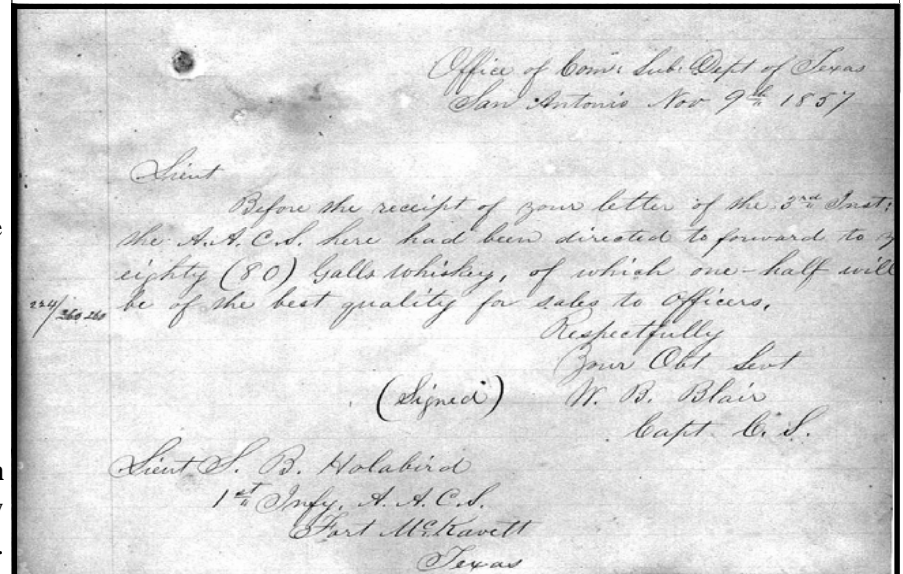 Office of Com: Sub: Dept of Texas
San Antonio Nov 9th 1857
Lieut
Before the receipt of your letter of the 3rd Inst:
the A.A.C.S. here had been directed to forward to y
eighty (80) Galls Whiskey, of which one-half will
be of the best quality for sales to Officers.
Respectfully
Your Obt Sevt
(Signed) W. B. Blair
Capt. C. S.
Lieut S. B. Holabird
1st Infy, A. A. C. S.
Fort McKavett
Texas